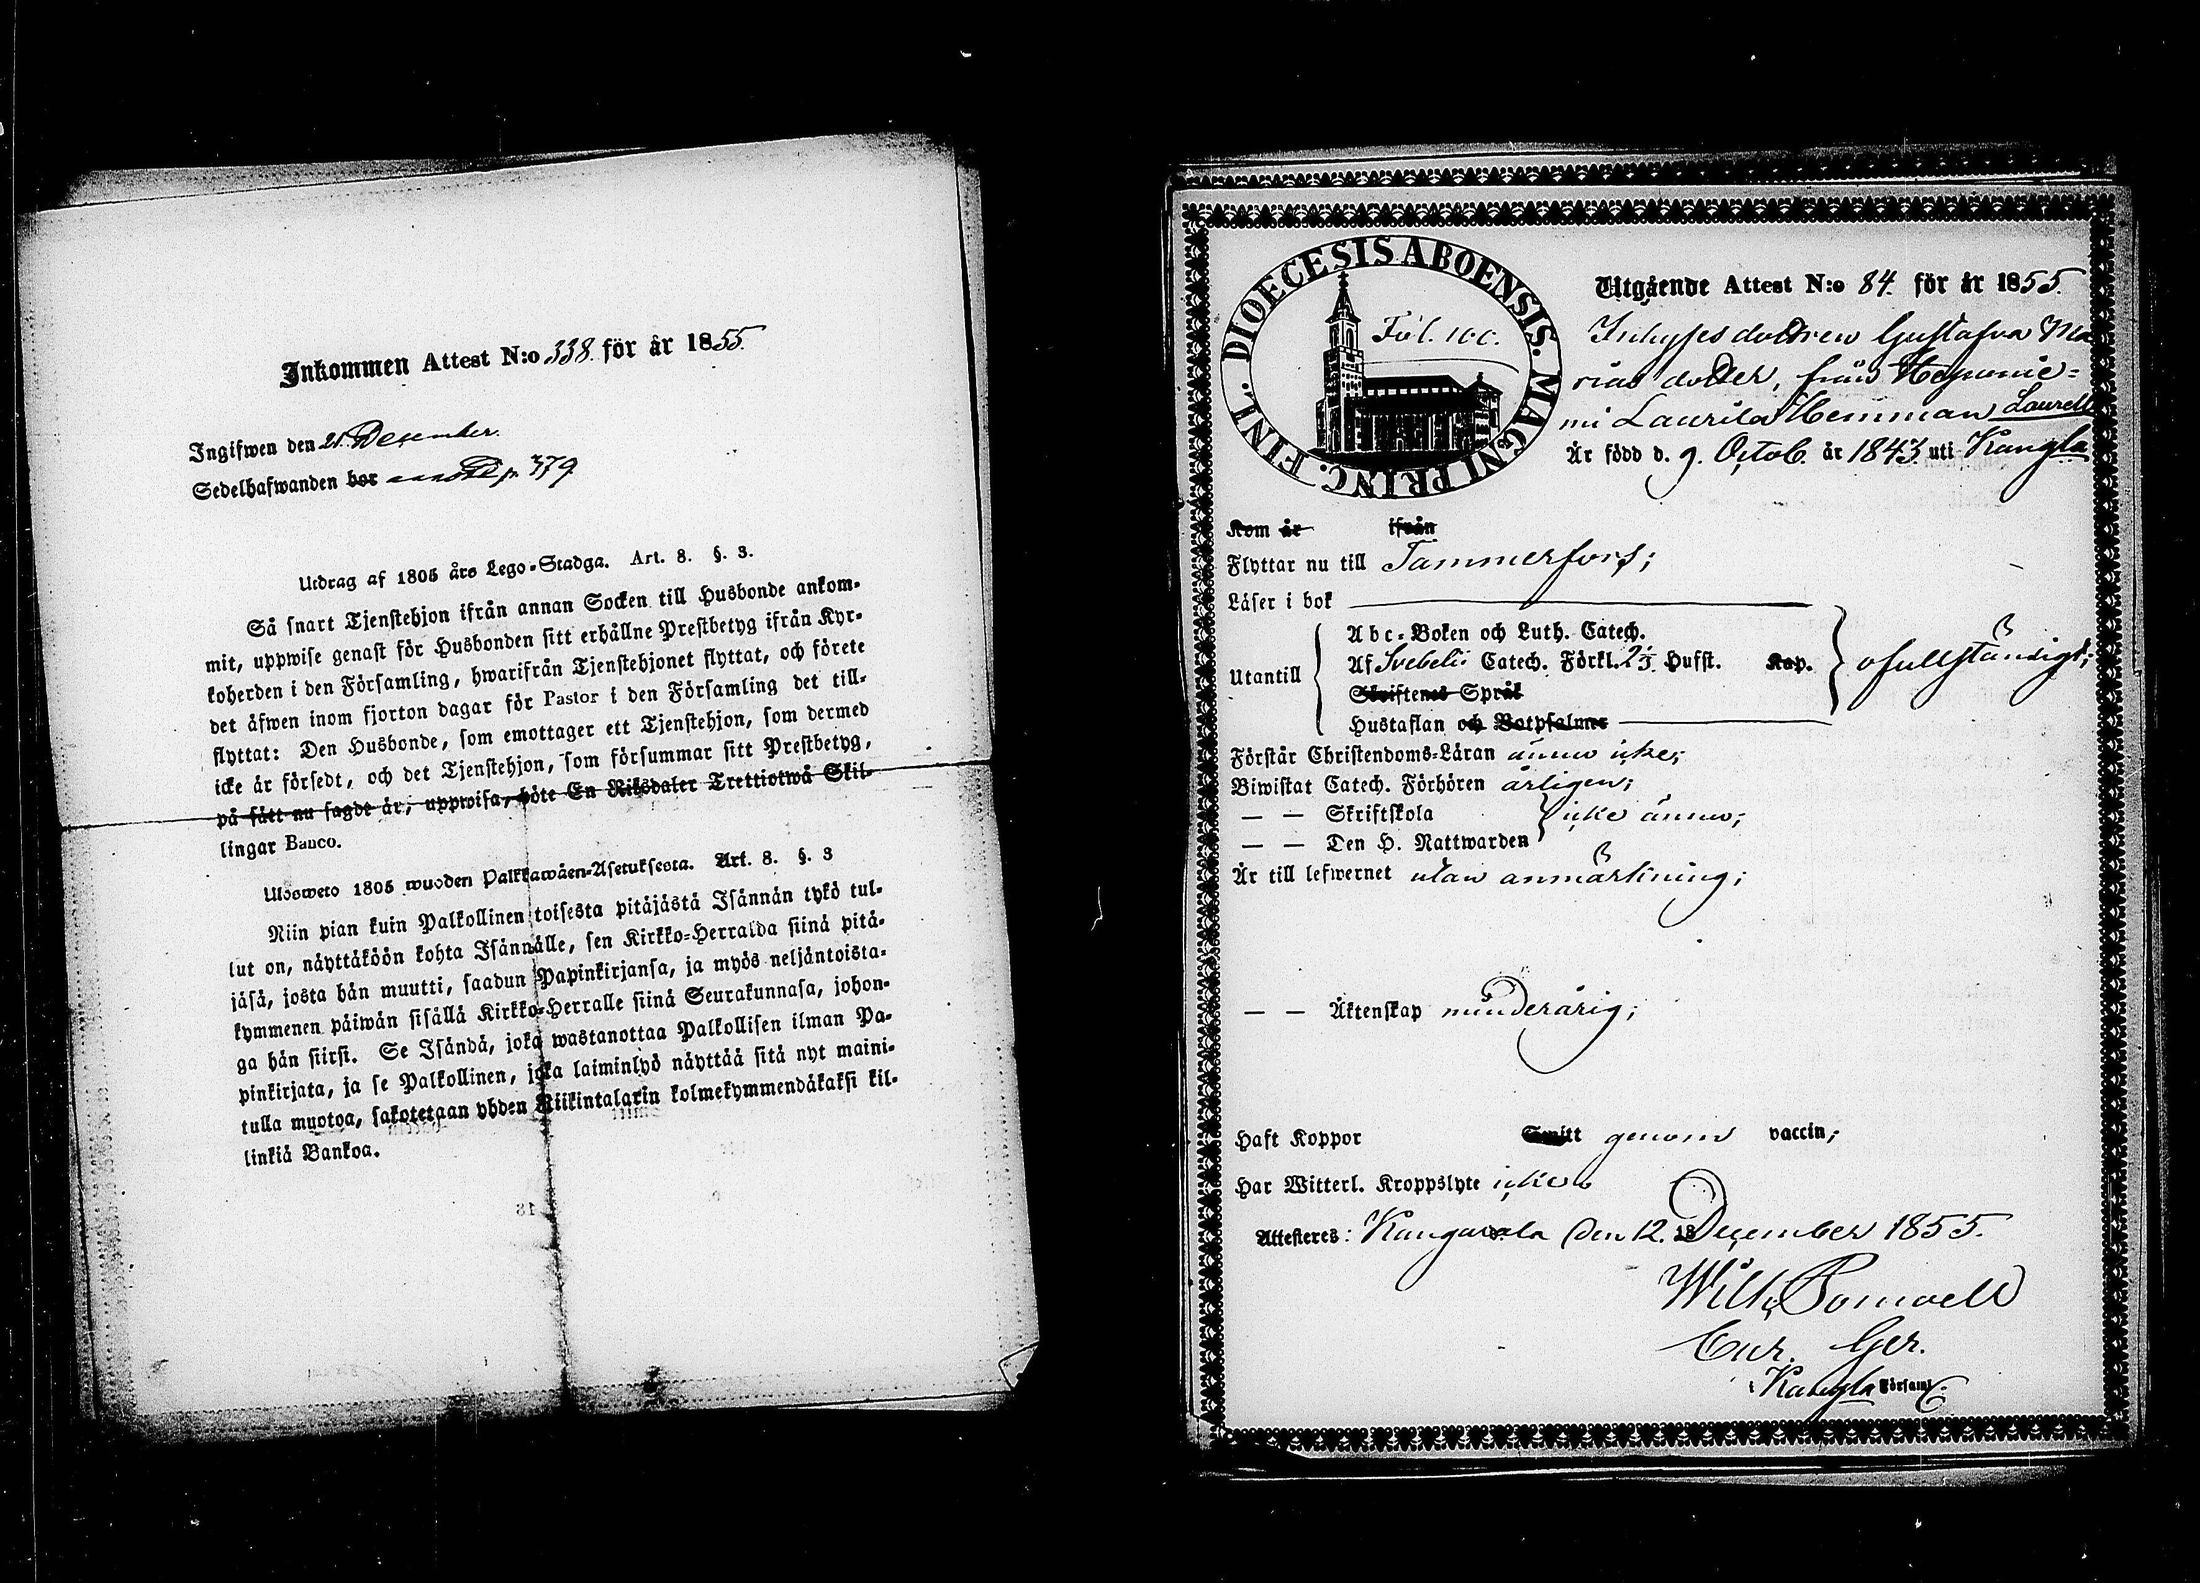 Inkommen Attest N:o 338. för år 1855.
Ingifwen den 21. December.
Sedelhafwanden bor p. 379
Utdrag af 1805 års Lego-Stadga. Art. 8. §. 3.
Så snart Tjenstehjon ifrån annan Socken till Husbonde ankom-
mit, uppwise genast för Husbonden sitt erhållne Prestbetyg ifrån Kyr-
koherden i den Församling, hwarifrån Tjenstehjonet flyttat, och förete
det åfwen inom fjorton dagar för Pastor i den Församling det till-
flyttat: Den Husbonde, som emottager ett Tjenstehjon, som dermed
icke är försedt, och det Tjenstehjon, som försummar sitt Prestbetyg,
på sått nu sagdt är, uppwisa, böte En Riksdaler Trettiotwå Skil-
lingar Banco.
Ulosweto 1805 wuoden Palkkawåen-Asetuksesta. Art. 8. §. 3
Niin pian kuin Palkollinen toisesta pitåjåstå Isånnån tykö tul-
lut on, nåyttåköön kohta Isånnålle, sen Kirkko-Herralda siinå pitå-
jåså, josta hån muutti, saadun Papinkirjansa, ja myös neljåntoista-
kymmenen påiwån sisållå Kirkko-Herralle siinå Seurakunnasa, johon-
ga hån siirsi. Se Isåndå, joka wastanottaa Palkollisen ilman Pa-
pinkirjata, ja se Palkollinen, joka laiminlyö nåyttåå sitå nyt maini-
tulla muotoa, sakotetaan yhden Riikintalarin kolmekymmendåkaksi kil-
linkiå Bankoa.
DIOECESIS ABOENSIS. MAGNI PRINC. FINL.
Fol. 100.
Utgående Attest N:o 84. för år 1855.
Inhysesdottren Gustafva Ma
rias dotter, från
mi Laurila Hemman Laurell
År född d. 9. Octob. år 1843. uti Kangla
Kom år ifrån
Flyttar nu till Tammerfors;
Låser i bok
Utantill
Abc-Boken och Luth. Catech.
Af Svebelii Catech. Förkl. 2 Hufst. Kap.
Skriftenes Språk
Hustaflan och Botpsalmer
ofullständigt;
Förstår Christendoms-Låran ännu icke;
Biwistat Catech. Förhören årligen;
— — Skriftskola
— — Den H. Nattwarden
icke ännu;
År till lefwernet utan anmärkning;
— — Åktenskap minderårig;
Haft Koppor Smitt genom vaccin;
Har Witterl. Kroppslyte icke
Attesteres: Kangasala den 12. December 1855.
Wilh.
Cur. Ger.
i Kangla Församl.